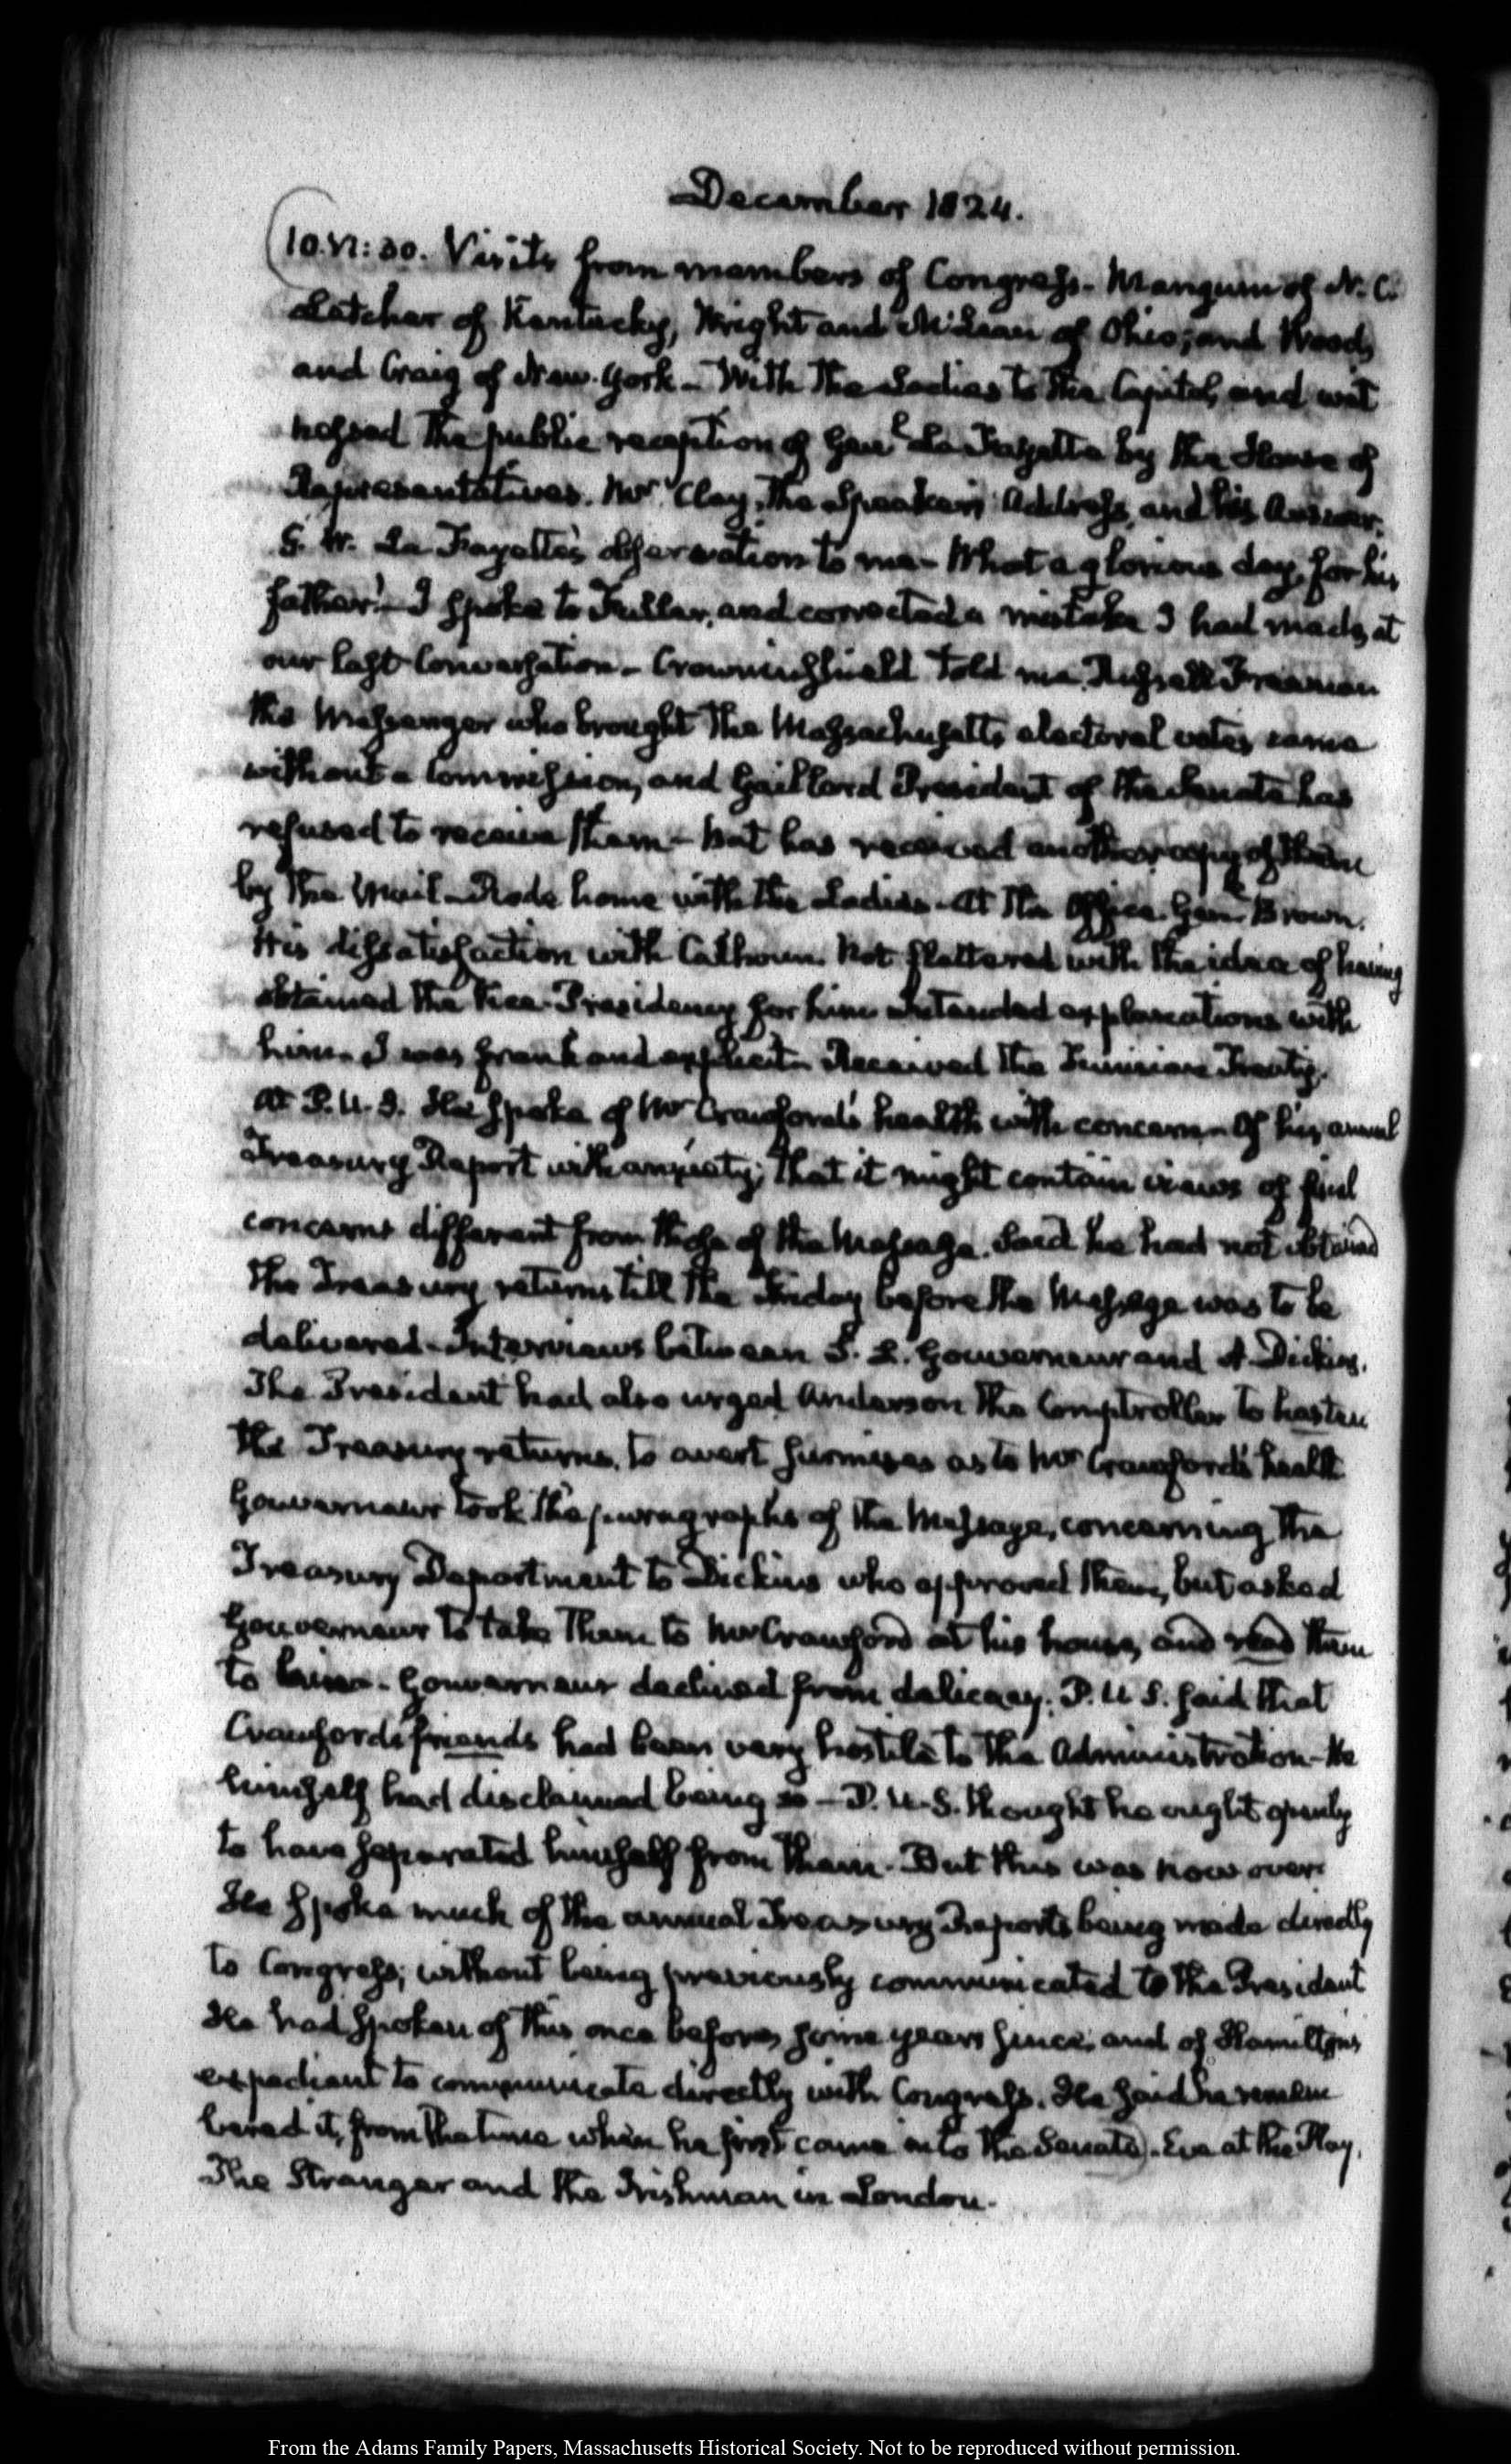 December 1824.
10. VI:30. Visits from members of Congress. Mangum of N. C.
Letcher of Kentucky, Wright and McLean of Ohio; and Woods
and Craig of New-York — With the Ladies to the Capitol, and wit
nessed the public reception of Genl. La Fayette by the House of
Representatives. Mr Clay, the Speaker's Address, and his Answer.
G. W. La Fayette's observation to me — What a glorious day, for his
father! — I spoke to Fuller, and corrected a mistake I had made, at
our last Conversation — Crowninshield told me, Russell Freeman
the Messenger who brought the Massachusetts electoral votes came
without a Commission, and Gaillard President of the Senate has
refused to receive them — but has received another copy of them
by the Mail — Rode home with the Ladies — At the Office. Genl. Brown.
His dissatisfaction with Calhoun. Not flattered with the idea of having
obtained the Vice-Presidency for him. Intended explanations with
him. I was frank and explicit. Received the Tunisian Treaty.
At P. U. S. He spoke of Mr Crawford's health with concern — Of his annual
Treasury Report with anxiety; that it might contain views of
concerns different from those of the Message. Said he had not obtained
the Treasury returns till the Friday before the Message was to be
delivered — Interviews between S. L. Gouverneur and A. Dickins.
The President had also urged Anderson the Comptroller to hasten
the Treasury returns, to avert surmises as to Mr Crawford's health
Gouverneur took the paragraphs of the Message, concerning the
Treasury Department to Dickins who approved them, but asked
Gouverneur to take them to Mr Crawford at his house, and read them
to him. Gouverneur declined from delicacy. P. U S. said that
Crawford's friends had been very hostile to the Administration — He
himself had disclaimed being so — P. U. S. thought he ought openly
to have separated himself from them. But this was now over.
He spoke much of the annual Treasury Reports being made directly
to Congress; without being previously communicated to the President
He had spoken of this once before, some years since, and of Hamilton's
expedient to communicate directly with Congress. He said he remem
bered it, from the time when he first came into the Senate). Eve at the Play.
The Stranger and the Irishman in London.
From the Adams Family Papers, Massachusetts Historical Society. Not to be reproduced without permission.